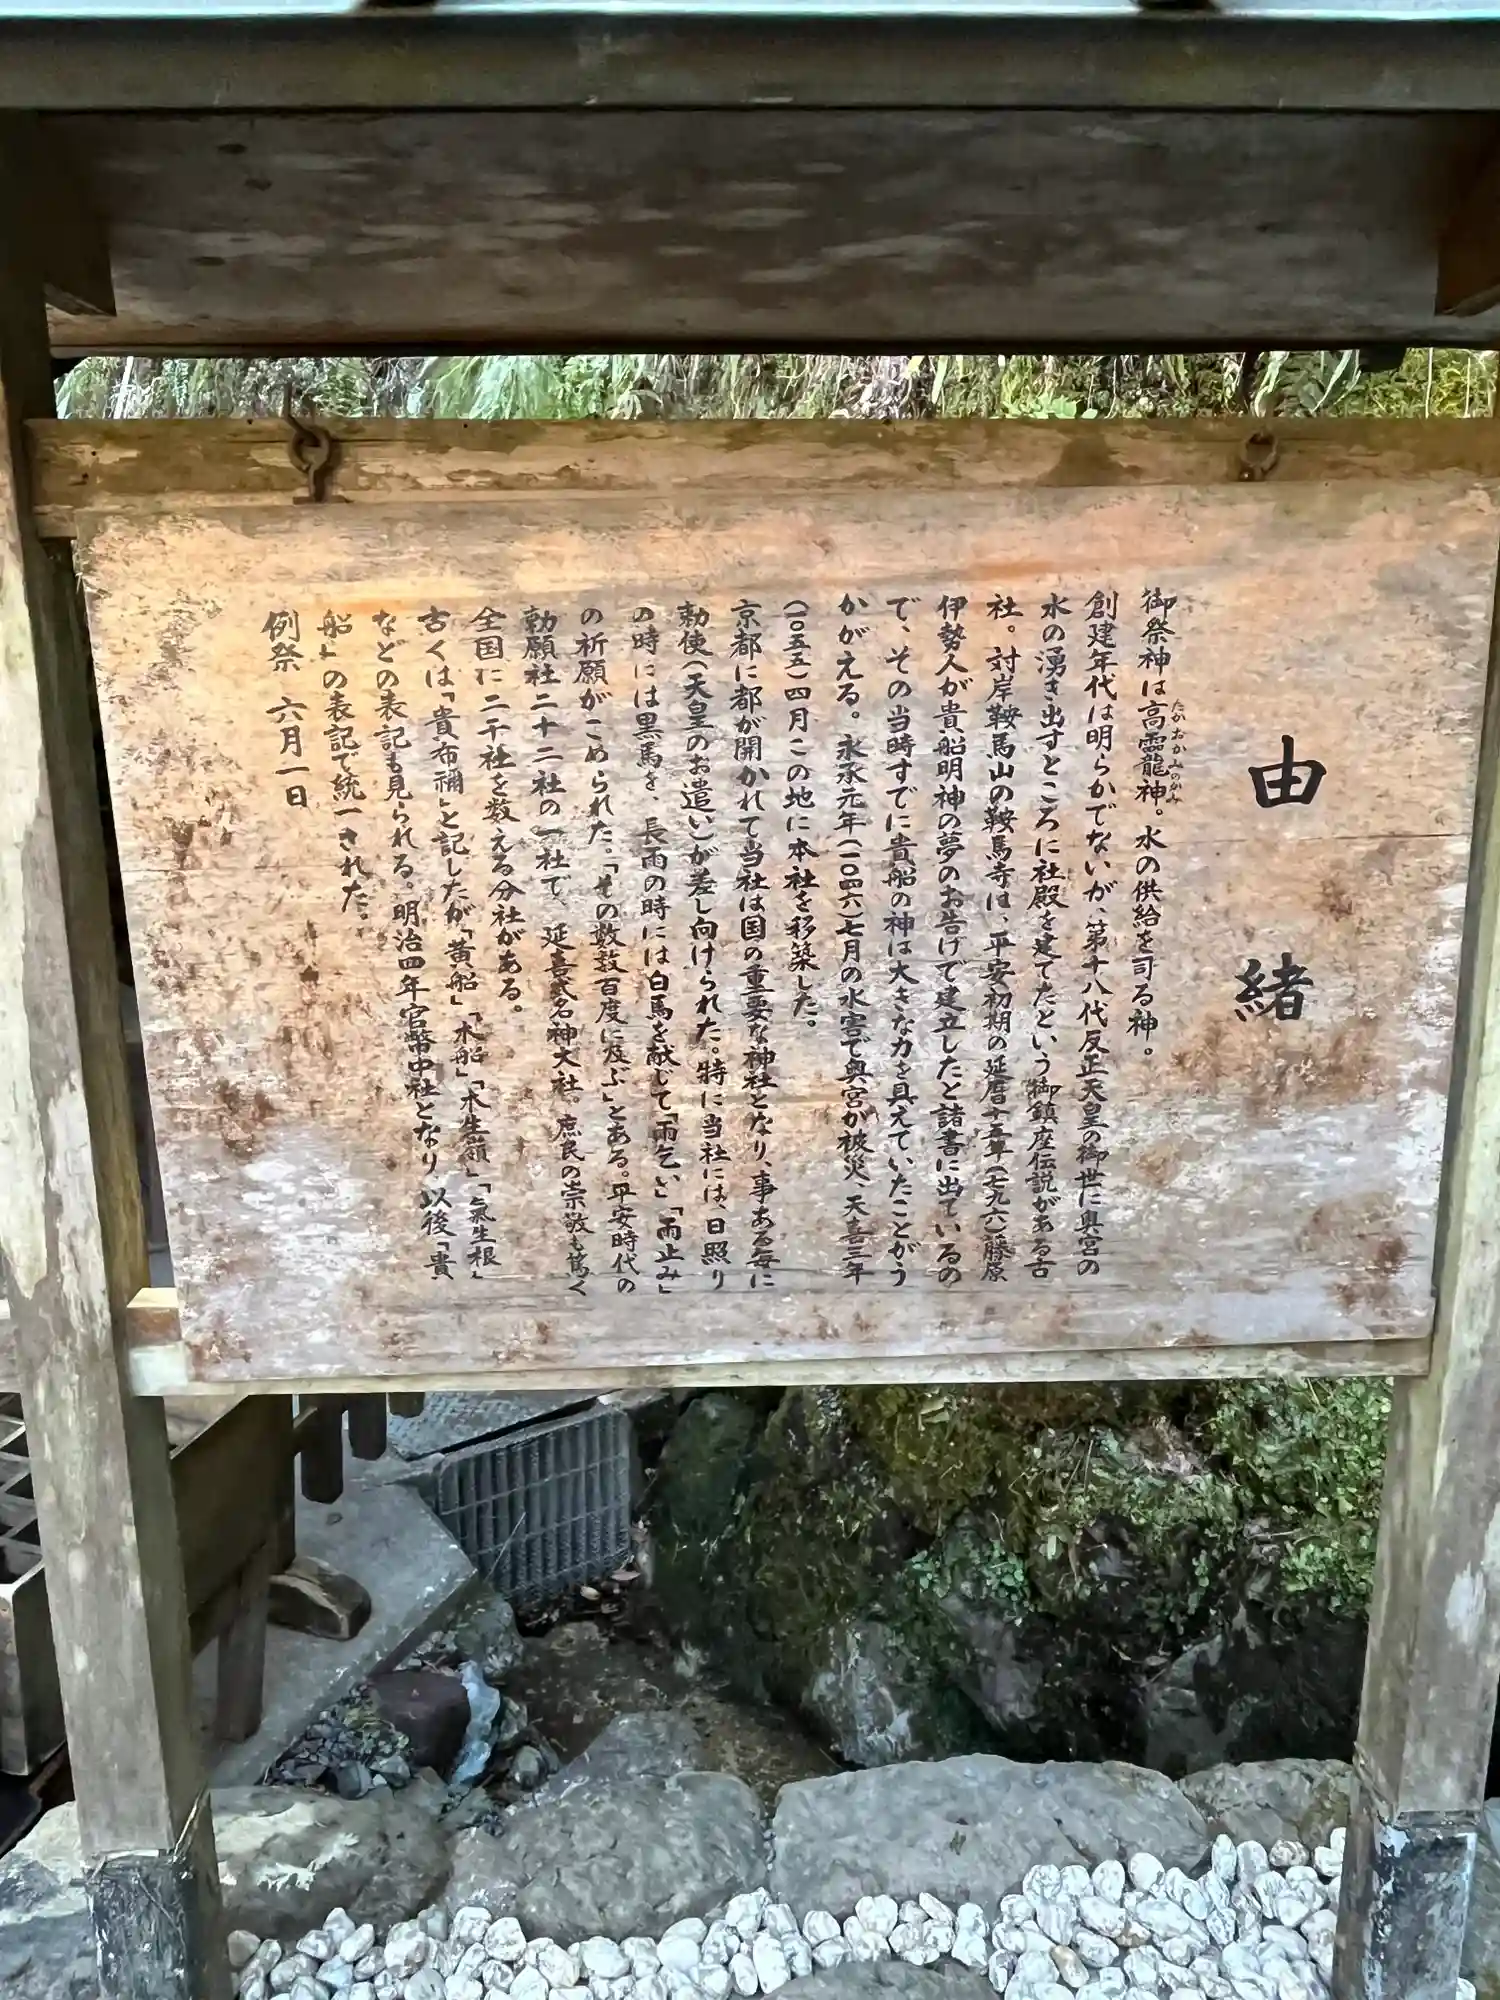 由緒
御祭神は高龗神。水の供給を司る神。
たかおかみのかみ
創建年代は明らかでないが、第十八代反正天皇の御世に奥宮の
水の湧き出すところに社殿を建てたという御鎮座伝説がある古
社。対岸鞍馬山の鞍馬寺は、平安初期の延暦十五年(七九六)藤原
伊勢人が貴船明神の夢のお告げで建立したと諸書に出ているの
で、その当時すでに貴船の神は大きな力を具えていたことがう
かがえる。永承元年(一〇四六)七月の水害で奥宮が被災、天喜三年
(一〇五五)四月この地に本社を移築した。
京都に都が開かれて当社は国の重要な神社となり、事ある毎に
勅使(天皇のお遣い)が差し向けられた。特に当社には、日照り
の時には黒馬を、長雨の時には白馬を献じて「雨乞い」「雨止み」
の祈願がこめられた。「その数数百度に及ぶ」とある。平安時代の
勅願社二十二社の一社で、延喜式名神大社。庶民の崇敬も篤く
全国に二千社を数える分社がある。
古くは「貴布禰」と記したが「黄船」「木船」「木生嶺」「氣生根」
などの表記も見られる。明治四年官幣中社となり、以後「貴
船」の表記で統一された。
例祭 六月一日